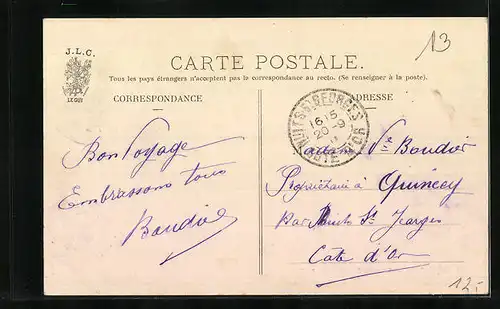 13
J.L.C.
CARTE POSTALE.
Tous les pays étrangers n'acceptent pas la correspondance au recto. (Se renseigner à la poste).
CORRESPONDANCE
ADRESSE
NUITS-S-GEORGES
16 15
20-9
CÔTE D'OR
Bon Voyage
Embrassons tous
Baudier
adame Vve Baudier
Propriétaire à Quincey
Par Nuits St Jeorges
Cote d'or
12.-